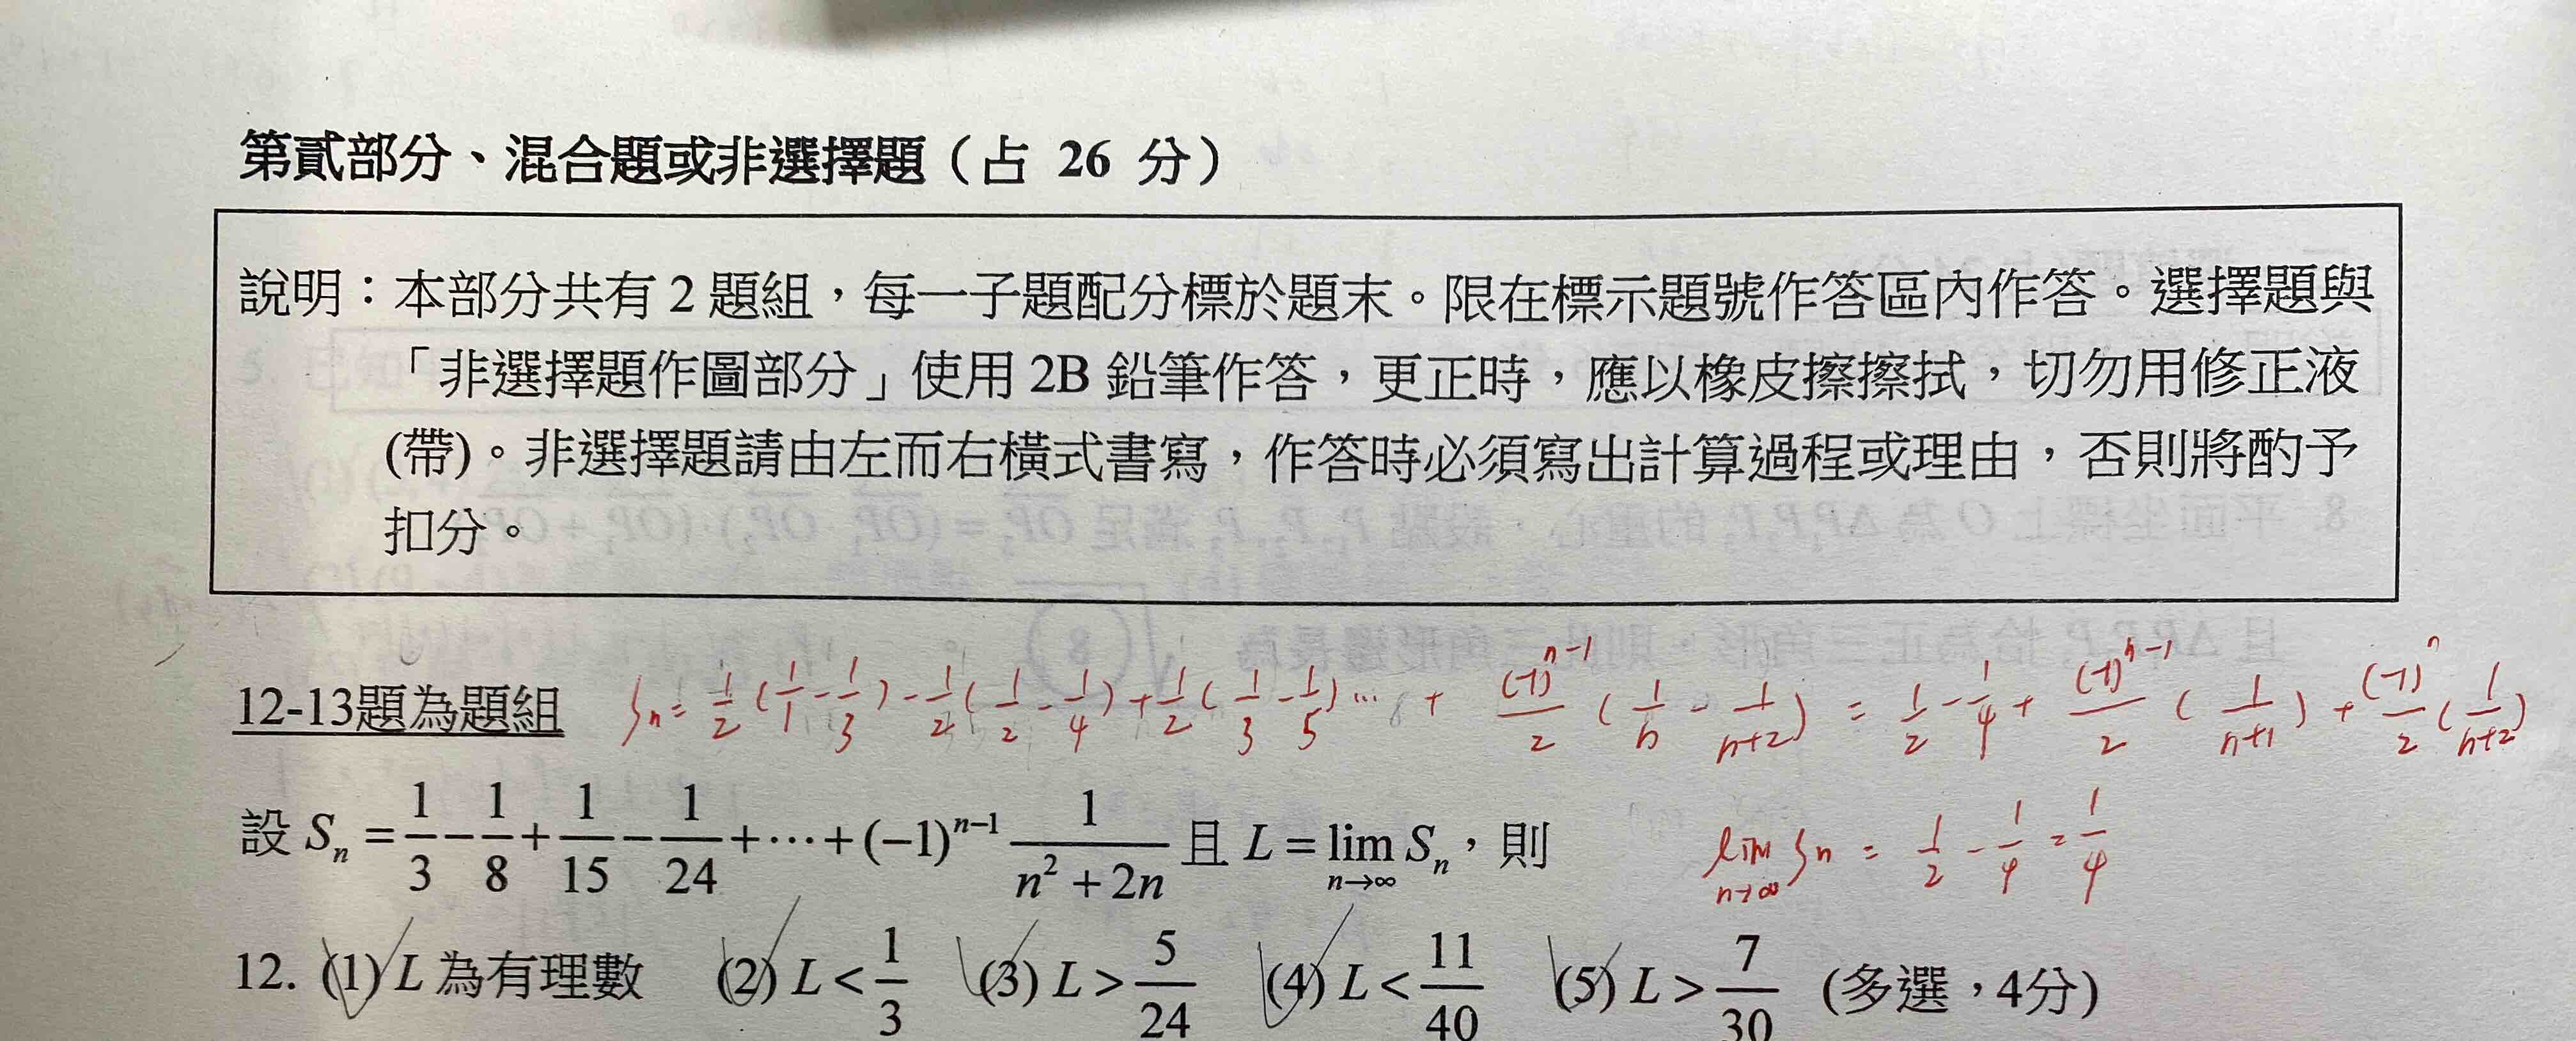 第貳部分、混合題或非選擇題（占 26 分）
說明：本部分共有 2 題組，每一子題配分標於題末。限在標示題號作答區內作答。選擇題與
「非選擇題作圖部分」使用 2B 鉛筆作答，更正時，應以橡皮擦擦拭，切勿用修正液
(帶)。非選擇題請由左而右橫式書寫，作答時必須寫出計算過程或理由，否則將酌予
扣分。
12-13題為題組
Sn = 1/2 (1/1 - 1/3) - 1/2 (1/2 - 1/4) + 1/2 (1/3 - 1/5) … + (-1)^(n-1)/2 (1/n - 1/(n+2)) = 1/2 - 1/4 + (-1)^(n-1)/2 (1/(n+1)) + (-1)^n/2 (1/(n+2))
設 Sₙ = 1/3 - 1/8 + 1/15 - 1/24 + ⋯ + (-1)^(n-1) 1/(n² + 2n) 且 L = lim n→∞ Sₙ，則
lim n→∞ Sn = 1/2 - 1/4 = 1/4
12. (1) L 為有理數 (2) L < 1/3 (3) L > 5/24 (4) L < 11/40 (5) L > 7/30 (多選，4分)